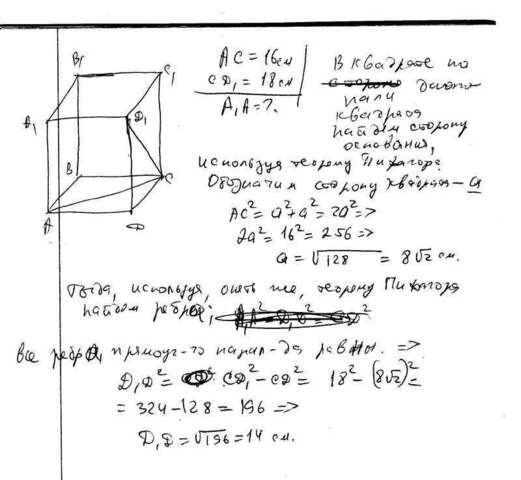 B₁
C₁
A₁
D₁
B
C
A
D
AC = 16 см
CD₁ = 18 см
A₁A = ?
В квадрате по
диаго
нали
квадрата
найдем сторону
основания,
используя теорему Пифагора.
Обозначим сторону квадрата – a
AC² = a² + a² = 2a² =>
2a² = 16² = 256 =>
a = √128 = 8√2 см.
Тогда, используя, опять же, теорему Пифагора
найдем ребро;
Все ребра прямоуг-го парал-да равны. =>
D₁D² = CD₁² – CD² = 18² – (8√2)² =
= 324 – 128 = 196 =>
D₁D = √196 = 14 см.